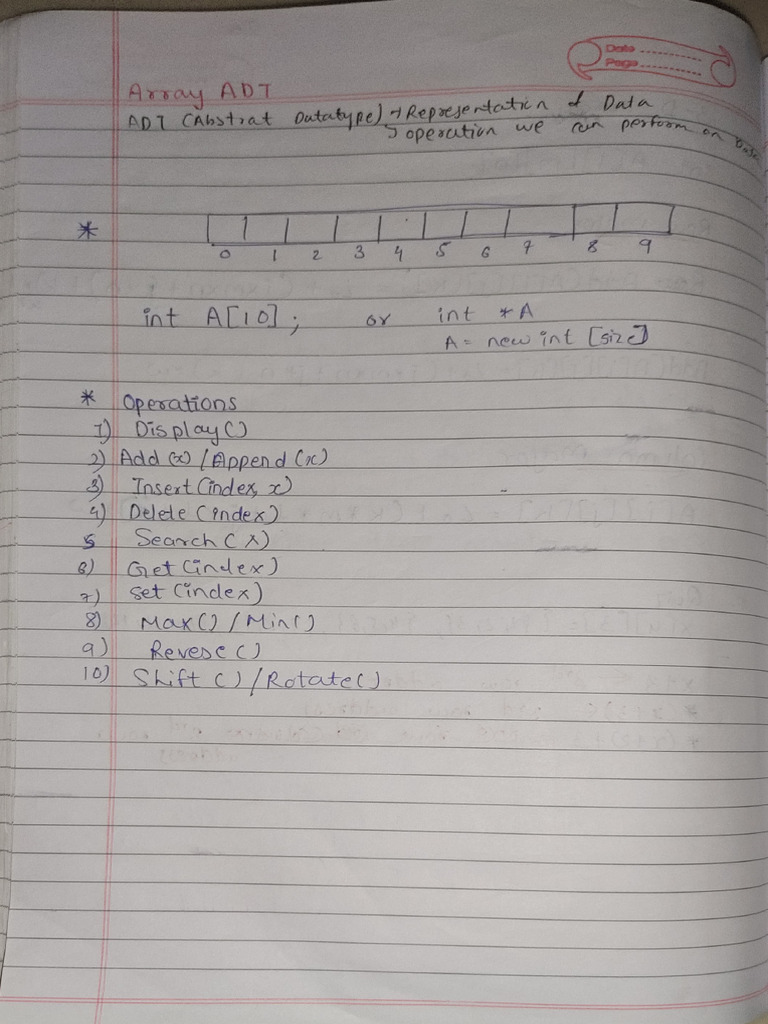 Date
Page
Array ADT
ADT (Abstrat Datatype) → Representation of Data
→ operation we can perform on Data
*
0 1 2 3 4 5 6 7 8 9
int A[10]; or int *A
A = new int [size]
* Operations
1) Display()
2) Add(x) / Append(x)
3) Insert(index, x)
4) Delete (index)
5 Search(x)
6) Get(index)
7) set(index)
8) Max() / Min()
9) Revese()
10) Shift () / Rotate()